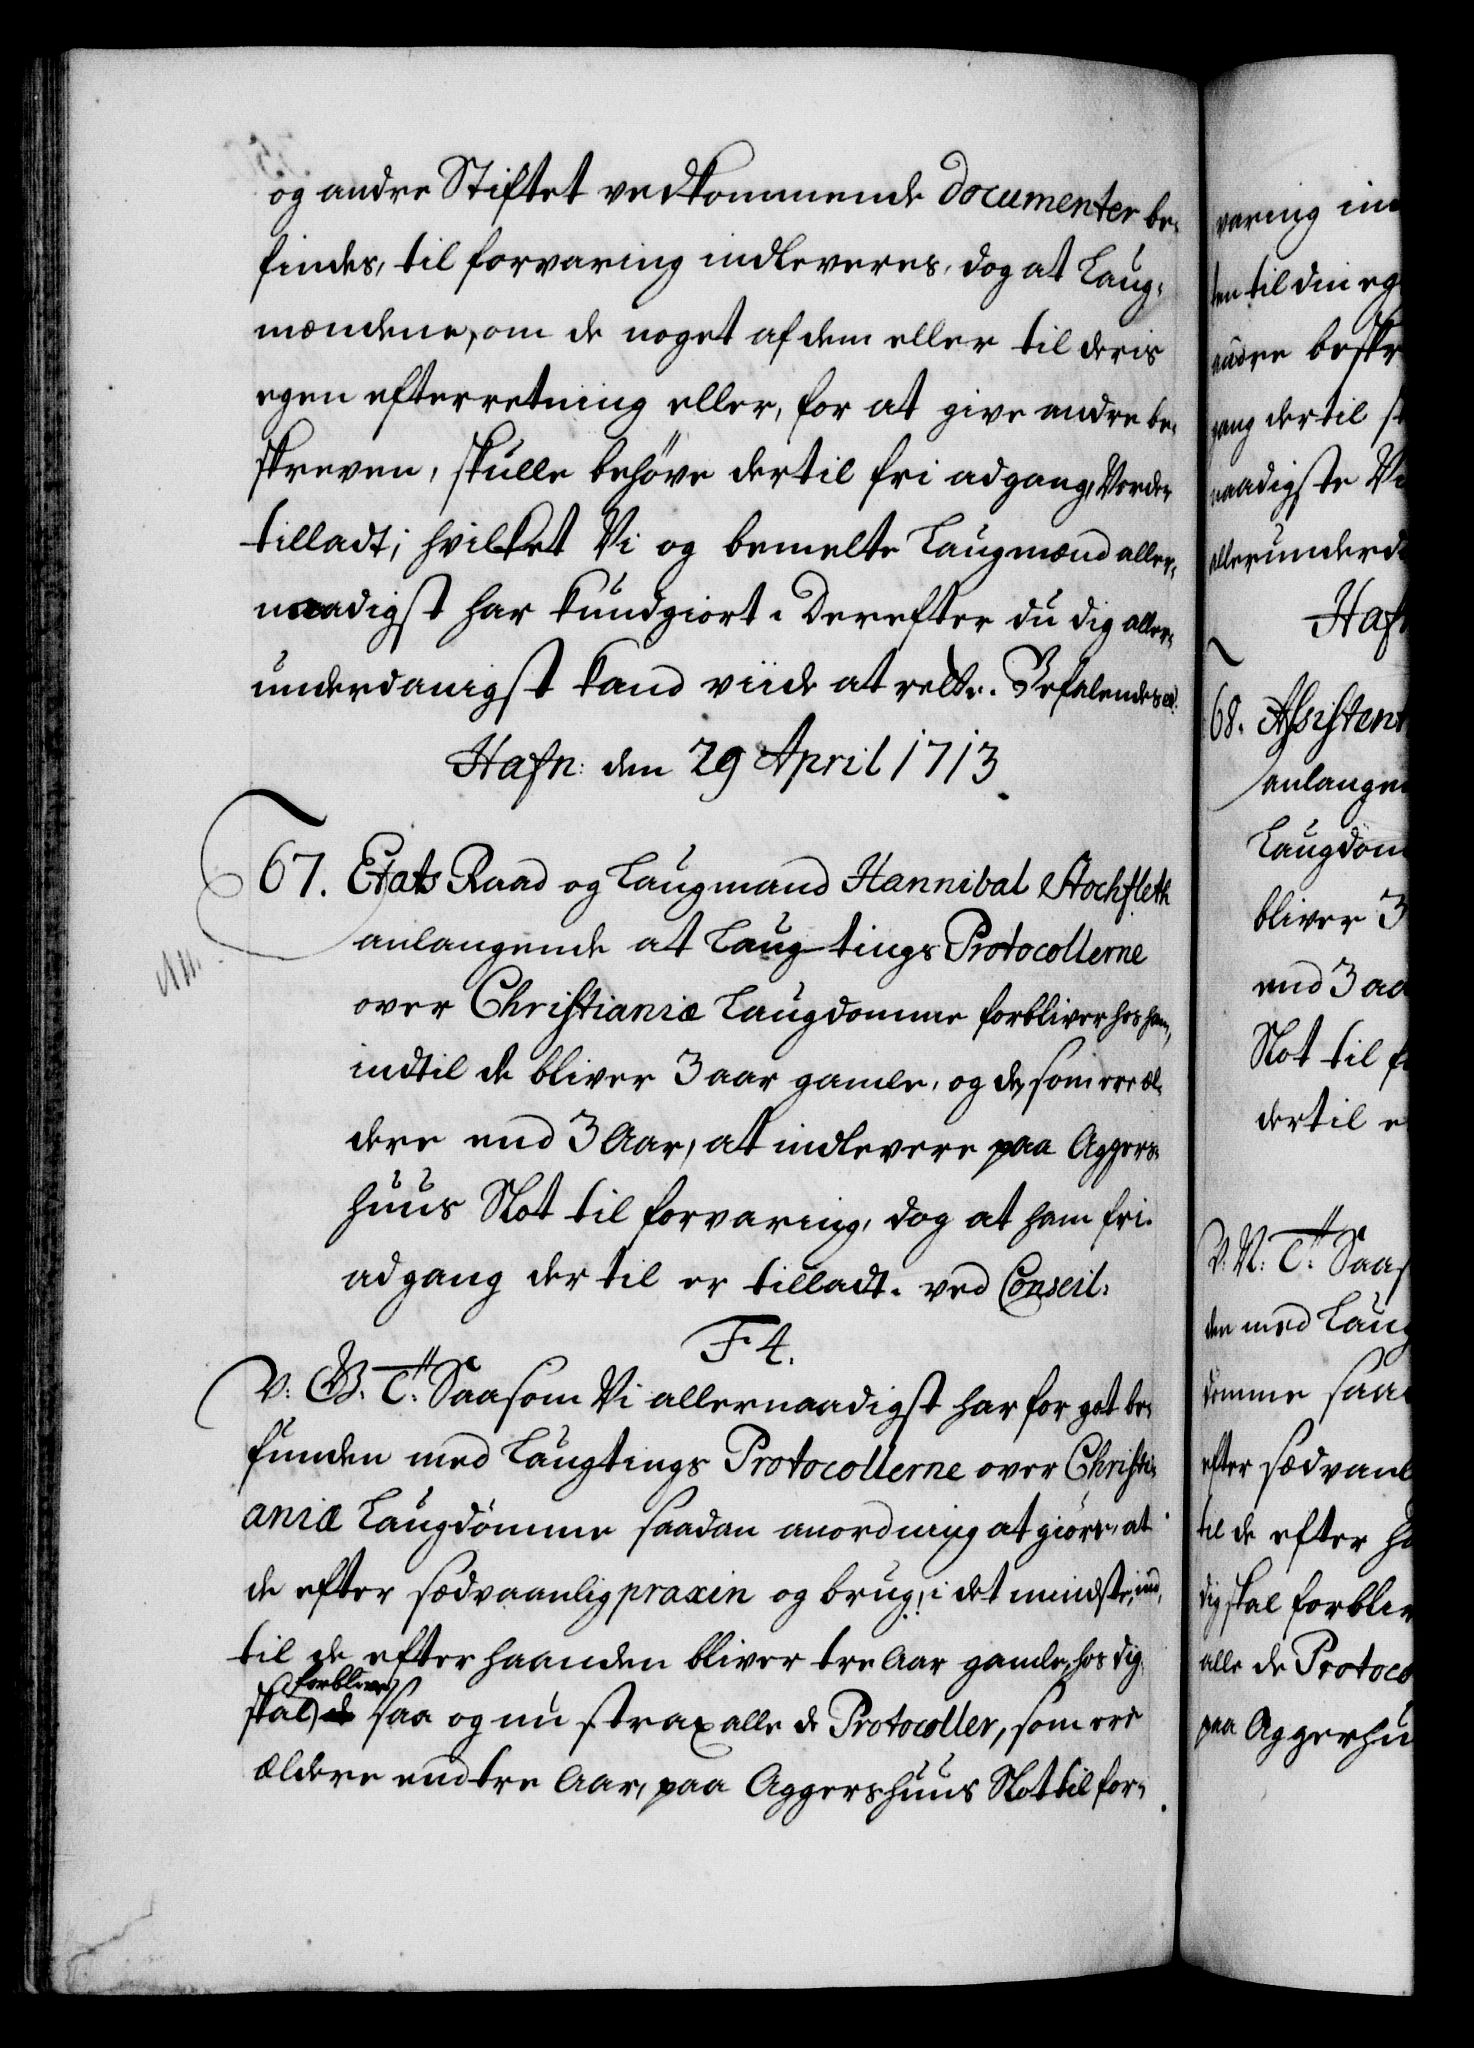 og andre Stiftet vedkommende documenter be-
findes, til forvaring indleveres, dog at Laug-
mændene, om de noget af dem eller til deris
egen efterretning eller, for at give andre be-
skreven, skulle behöve dertil fri adgang, Vorder
tilladt; hvilket Vi og bemelte Laugmænd aller-
naadigst har kundgiort. Derefter du dig aller-
underdanigst kand viide at rette. Befalendes
Hafn: den 29 April 1713.
67. Etats Raad og Laugmand Hannibal Stochfleth
anlangende at Laug-tings Protocollerne
over Christianiæ Laugdomme forbliver hos ham,
indtil de bliver 3 aar gamle, og de, som ere æl-
dere end 3 Aar, at indlevere paa Aggers-
huus Slot til forvaring, dog at ham fri
adgang der til er tilladt. ved Conseil:
F 4.
V. G. T. Saasom Vi allernaadigst har for got be-
funden med Laugtings Protocollerne over Christi-
aniæ Laugdömme saadan anordning at giöre, at
de efter sædvaanlig praxin og brug, i det mindste, ind-
til de efterhaanden bliver tre Aar gamle, hos dig
skal forblive saa og nu strax alle de Protocoller, som ere
ældere end tre Aar, paa Aggershuus Slot til for-
varing in
ten til din eg
andre beskr
gang dertil
naadigste Vi
allerunderd
Haf
68. Assistent
anlangen
Laugdöm
bliver 3
end 3 aa
Slot til f
dertil e
V. N: T: Saas
den med Laug
domme saa
efter sædvanl
til de efter h
dig skal forbliv
alle de Protoco
paa Aggerhu